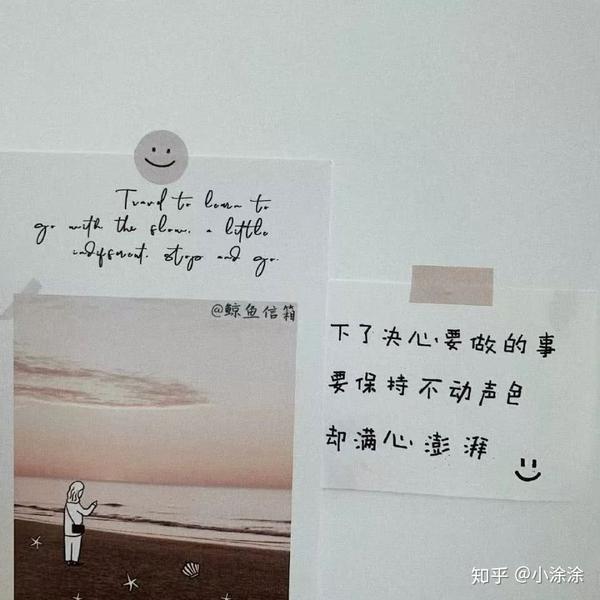 Travel to learn to
go with the slow. a little
indifferent. stop and go.
@鲸鱼信箱
下了决心要做的事
要保持不动声色
却满心澎湃
知乎 @小涂涂